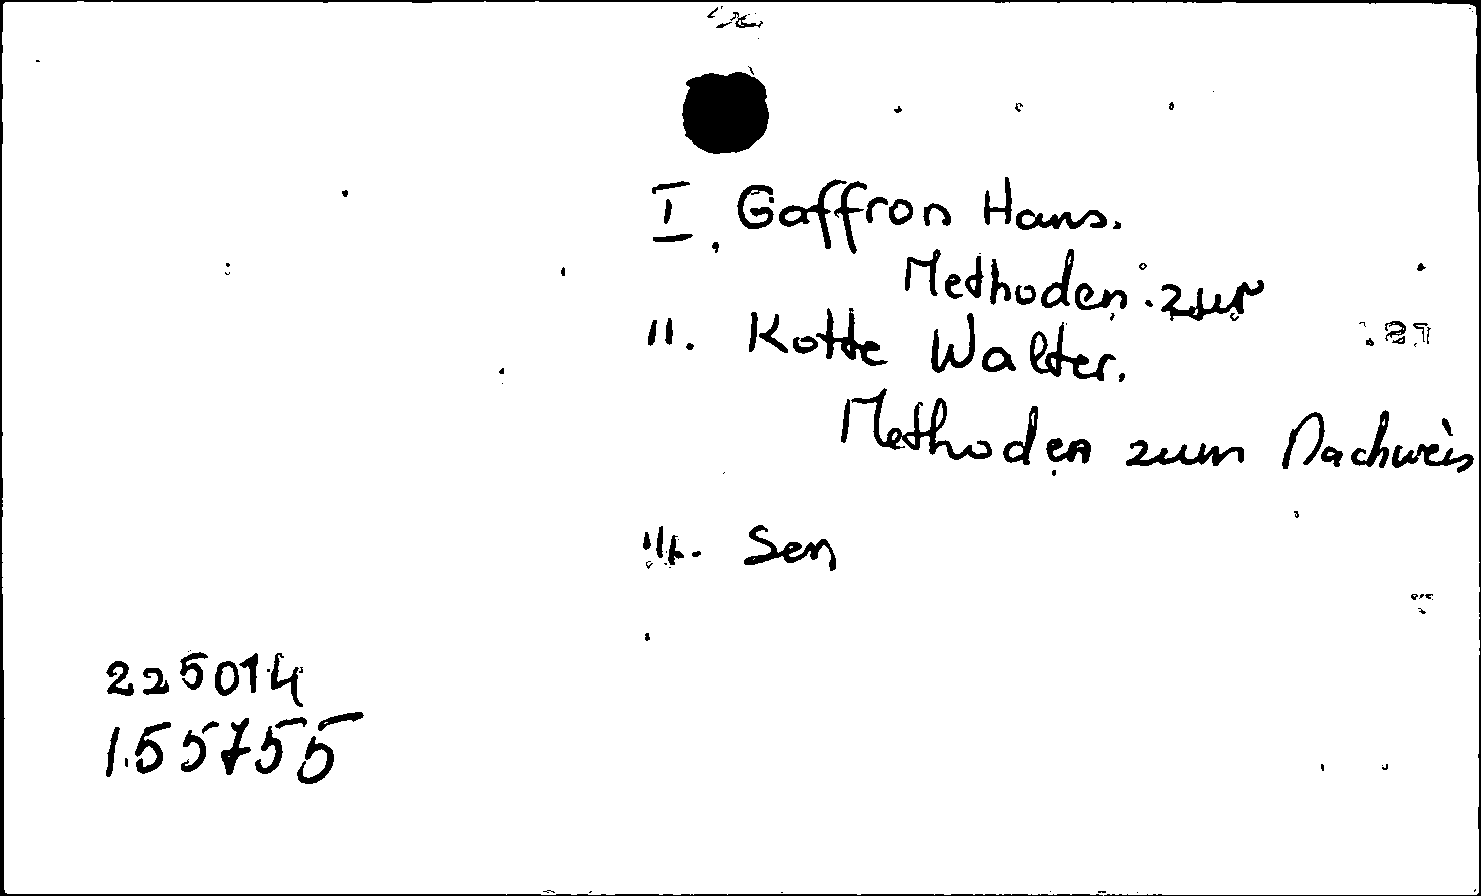 I. Gaffron Hans.
Methoden zur
II. Kotte Walter.
Methoden zum Nachweis
III. Sen
225014
155755